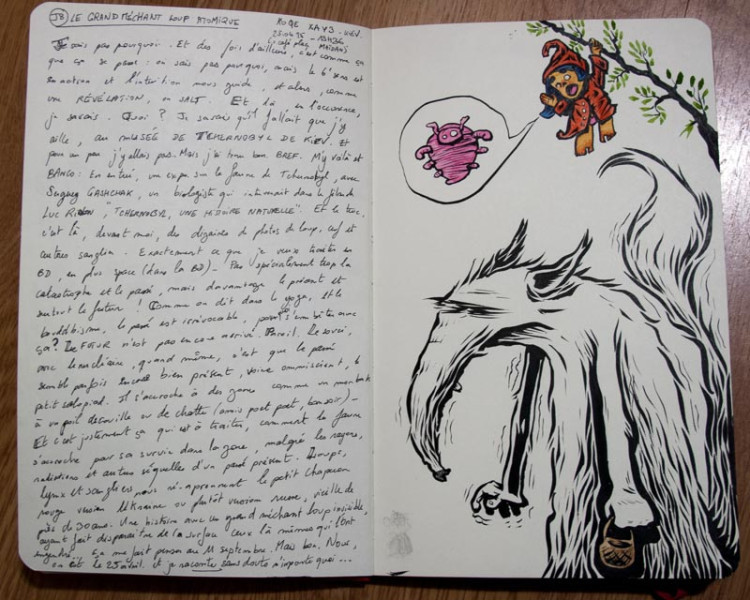 J8 LE GRAND MÉCHANT LOUP ATOMIQUE
Je sais pas pourquoi. Et des fois d'ailleurs, c'est comme ça
que ça se passe : on sais pas pourquoi, mais le 6e sens est
en action et l'intuition nous guide, et alors, comme
une RÉVÉLATION, on SAIT. Et là en l'occurence,
je savais. Quoi ? Je savais qu'il fallait que j'y
aille, au MUSÉE DE TCHERNOBYL DE KIEV. Et
pour un peu j'y allais pas. Mais j'ai tenu bon. BREF. M'y voilà et
BANCO : En entier, un expo sur la faune de Tchernobyl, avec
GASHCHAK, un biologiste qui intervenait dans le film de
Luc "TCHERNOBYL, UNE HISTOIRE NATURELLE". Et le truc,
c'est là, devant moi, des dizaines de photos de loup, cerf et
autres sanglier. Exactement ce que je veux traiter en
BD, en plus space (dans la BD) - Pas spécialement trop la
catastrophe et le passé, mais davantage le présent et
surtout le futur ! Comme on dit dans le yoga, et le
bouddhisme, le passé est irrévocable, avec
ça ? Le FUTUR n'est pas encore arrivé. Pareil. Le souci,
avec le nucléaire, quand même, c'est que le passé
semble parfois encore bien présent, voire omniscient, le
petit salopiard. Il s'accroche à des gones comme un morback
à un poil de couille ou de chatte (amis poet poet, bonsoir) -
Et c'est justement ça qui est à traiter, comment la faune
s'accroche pour sa survie dans la zone, malgré les rayons,
radiations et autres séquelles d'un passé présent. Loups,
Lynx et sangliers nous ré-apprennent le petit chaperon
rouge version Ukraine ou plutôt version russe, vieille de
près de 30 ans. Une histoire avec un grand méchant loup invisible,
ayant fait disparaître de la surface ceux là mêmes qui l'ont
engendré. Ça me fait penser au 11 septembre. Mais bon. Nous,
on est le 25 avril. Et je raconte sans doute n'importe quoi...